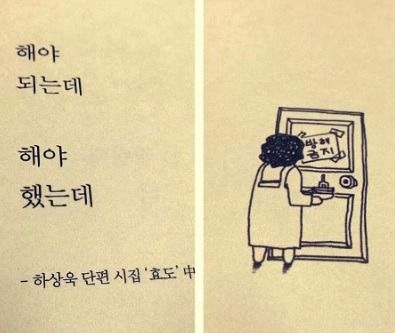 해야
되는데
해야
했는데
- 하상욱 단편 시집 '효도' 中
방해
금지